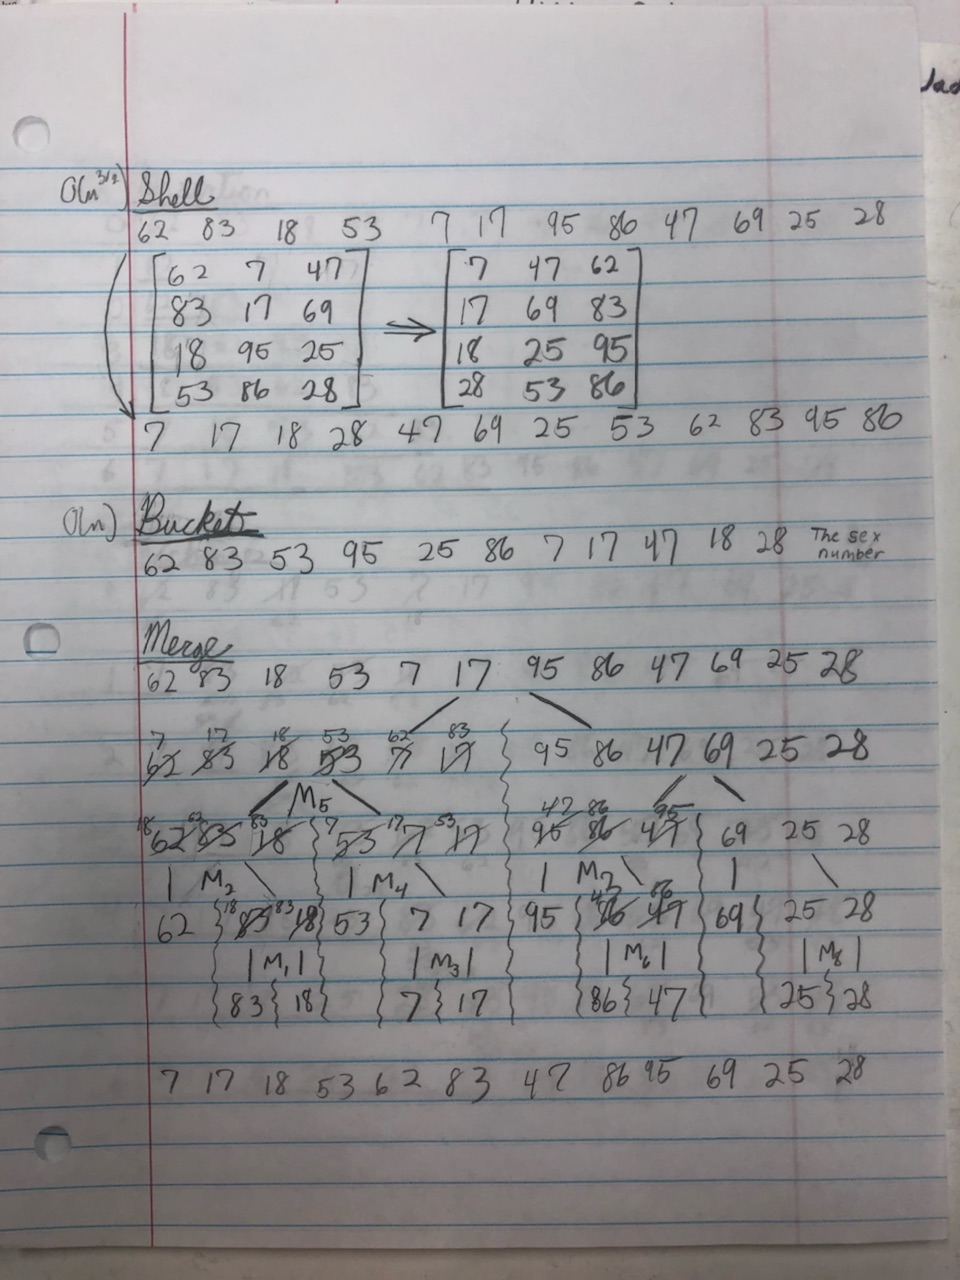 O(n^3/2) Shell
62 83 18 53 7 17 95 86 47 69 25 28
62 7 47 7 47 62
83 17 69 ⇒ 17 69 83
18 95 25 18 25 95
53 86 28 28 53 86
7 17 18 28 47 69 25 53 62 83 95 86
O(n) Bucket
62 83 53 95 25 86 7 17 47 18 28 The sex
number
Merge
62 83 18 53 7 17 95 86 47 69 25 28
7 17 18 53 62 83
62 83 18 53 7 17 95 86 47 69 25 28
M5
18 62 83 7 17 53 47 86 95
62 83 18 53 7 17 95 86 47 69 25 28
M2 M4 M7
18 83 47 86
62 83 18 53 7 17 95 86 47 69 25 28
M1 M3 M6 M8
83 18 7 17 86 47 25 28
7 17 18 53 62 83 47 86 95 69 25 28